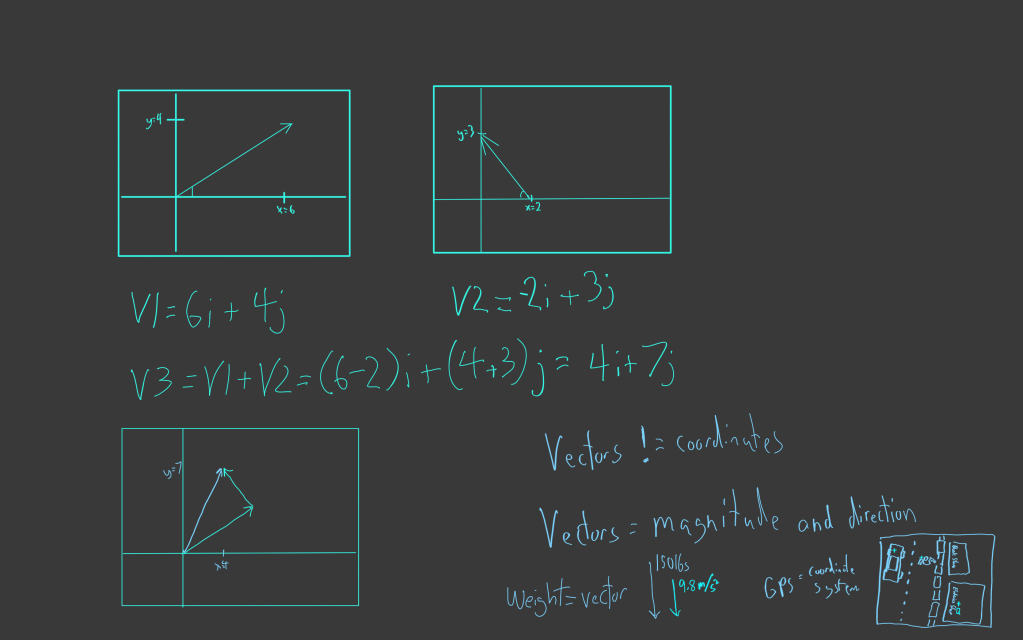 y=4
x=6
y=3
x=2
V1=6i+4j
V2=-2i+3j
V3=V1+V2=(6-2)i+(4+3)j=4i+7j
y=7
x4
Vectors != coordinates
Vectors = magnitude and direction
Weight=vector
150lbs
9.8m/s²
GPS=coordinate
system